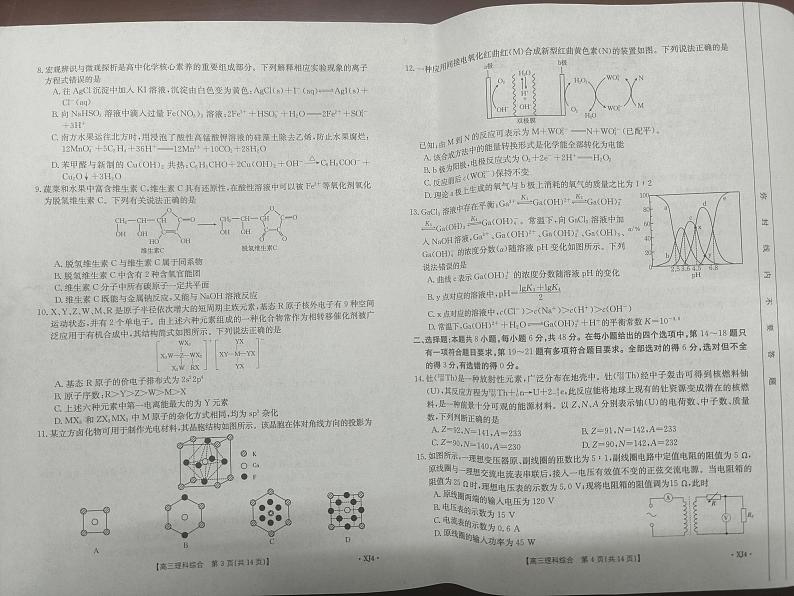 8. 宏观辨识与微观探析是高中化学核心素养的重要组成部分。下列解释相应实验现象的离子
方程式错误的是
A. 往 AgCl 沉淀中加入 KI 溶液，沉淀由白色变为黄色：AgCl(s)+I⁻(aq)⇌AgI(s)+
Cl⁻(aq)
B. 向 NaHSO₃ 溶液中滴入过量 Fe(NO₃)₃ 溶液：2Fe³⁺+HSO₃⁻+H₂O══2Fe²⁺+SO₄²⁻
+3H⁺
C. 南方水果运往北方时，用浸泡了酸性高锰酸钾溶液的硅藻土除去乙烯，防止水果腐烂：
12MnO₄⁻+5C₂H₄+36H⁺══12Mn²⁺+10CO₂+28H₂O
D. 苯甲醛与新制的 Cu(OH)₂ 共热：C₆H₅CHO+2Cu(OH)₂+OH⁻ △ C₆H₅COO⁻+
Cu₂O↓+3H₂O
9. 蔬菜和水果中富含维生素 C，维生素 C 具有还原性，在酸性溶液中可以被 Fe³⁺ 等氧化剂氧化
为脱氢维生素 C。下列有关说法正确的是
维生素C
脱氢维生素C
A. 脱氢维生素 C 与维生素 C 属于同系物
B. 脱氢维生素 C 中含有 2 种含氧官能团
C. 维生素 C 分子中所有碳原子一定共平面
D. 维生素 C 既能与金属钠反应，又能与 NaOH 溶液反应
10. X、Y、Z、W、M、R 是原子半径依次增大的短周期主族元素，基态 R 原子核外电子有 9 种空间
运动状态，并有 2 个单电子。由上述六种元素组成的一种化合物常作为相转移催化剂被广
泛应用于有机合成中，其结构简式如图所示。下列说法正确的是
A. 基态 R 原子的价电子排布式为 2s²2p⁴
B. 原子序数：R>Y>Z>W>M>X
C. 上述六种元素中第一电离能最大的为 Y 元素
D. MX₆ 和 ZX₃MX₃ 中 M 原子的杂化方式相同，均为 sp³ 杂化
11. 某立方卤化物可用于制作光电材料，其晶胞结构如图所示。该晶胞在体对角线方向的投影为
K
Ca
F
A
B
C
D
【高三理科综合　第 3 页(共 14 页)】
·XJ4·
12. 一种应用间接电氧化红曲红(M)合成新型红曲黄色素(N)的装置如图。下列说法正确的是
a极
b极
双极膜
已知：由 M 到 N 的反应可表示为 M+WO₅²⁻⟶N+WO₄²⁻(已配平)。
A. 该合成方法中的能量转换形式是化学能全部转化为电能
B. b 极为阳极，电极反应式为 O₂+2e⁻+2H⁺══H₂O₂
C. 反应前后 c(WO₄²⁻)保持不变
D. 理论 a 极上生成的氧气与 b 极上消耗的氧气的质量之比为 1∶2
13. GaCl₃ 溶液中存在平衡：
常温下，向 GaCl₃ 溶液中加
入 NaOH 溶液，
的浓度分数(α)随溶液 pH 变化如图所示。下列
说法错误的是
A. 曲线 c 表示 Ga(OH)₂⁺ 的浓度分数随溶液 pH 的变化
B. y 点对应的溶液中，pH=
C. x 点对应的溶液中，c(Cl⁻)>c(Na⁺)>c(H⁺)>c(OH⁻)
二、选择题：本题共 8 小题，每小题 6 分，共 48 分。在每小题给出的四个选项中，第 14～18 题只
有一项符合题目要求，第 19～21 题有多项符合题目要求。全部选对的得 6 分，选对但不全
的得 3 分，有选错的得 0 分。
14. 钍(²³²₉₀Th)是一种放射性元素，广泛分布在地壳中。钍(²³²₉₀Th)经中子轰击可得到核燃料铀
(U)，其反应方程为²³²₉₀Th+¹₀n→U+2⁰₋₁e，此反应能将地球上现有的钍资源变成潜在的核燃
料，是一种前景十分可观的能源材料。以 Z、N、A 分别表示铀(U)的电荷数、中子数、质量
数，下列判断正确的是
A. Z=92，N=141，A=233
B. Z=91，N=142，A=233
C. Z=90，N=140，A=230
D. Z=90，N=142，A=232
15. 如图所示，一理想变压器原、副线圈的匝数比为 5∶1，副线圈电路中定值电阻的阻值为 5 Ω，
原线圈与一理想交流电流表串联后，接入一电压有效值不变的正弦交流电源。当电阻箱的
阻值为 25 Ω 时，理想电压表的示数为 5.0 V；现将电阻箱的阻值调为 15 Ω，此时
A. 原线圈两端的输入电压为 120 V
B. 电压表的示数为 15 V
C. 电流表的示数为 0.6 A
D. 原线圈的输入功率为 45 W
【高三理科综合　第 4 页(共 14 页)】
·XJ4·
密
封
线
内
不
要
答
题